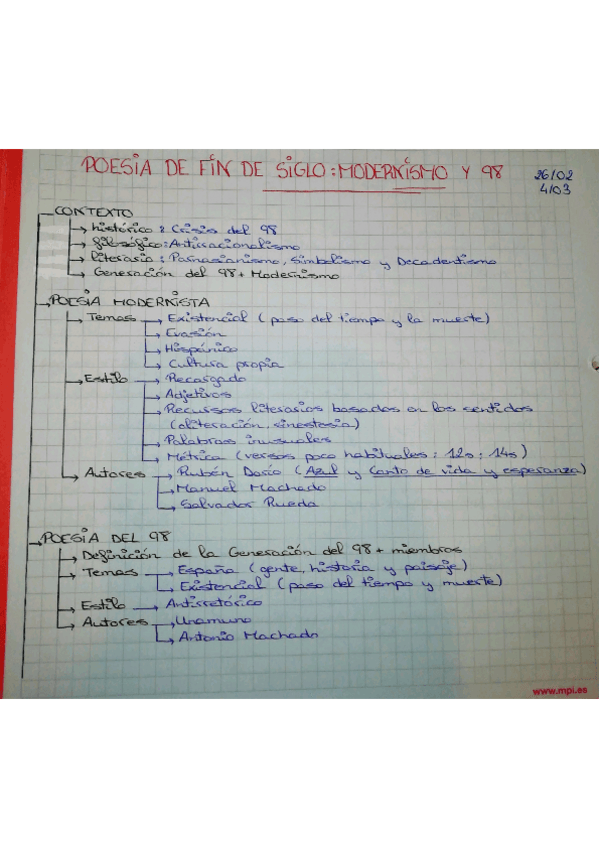 POESIA DE FIN DE SIGLO: MODERNISMO Y 98
26/02
4/03
CONTEXTO
histórico: Crisis del 98
filosófico: Antirracionalismo
literario: Parnasianismo, Simbolismo y Decadentismo
Generación del 98 + Modernismo
POESIA MODERNISTA
Temas Existencial (paso del tiempo y la muerte)
Evasión
Hispánico
Cultura propia
Estilo Recargado
Adjetivos
Recursos literarios basados en los sentidos
(aliteración, sinestesia)
Palabras inusuales
Métrica (versos poco habituales: 12s; 14s)
Autores Rubén Darío (Azul y Canto de vida y esperanza)
Manuel Machado
Salvador Rueda
POESIA DEL 98
Definición de la Generación del 98 + miembros
Temas España (gente, historia y paisaje)
Existencial (paso del tiempo y muerte)
Estilo Antirretórico
Autores Unamuno
Antonio Machado
www.mpi.es